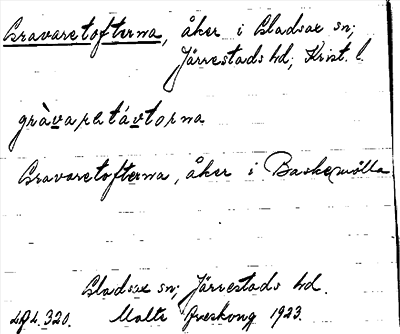 Gravaretofterna, åker i Gladsax sn;
Järrestads hd; Krist. l.
gràvaretávtorna
Gravaretofterna, åker i Baskemölla
Gladsax sn; Järrestads hd.
Malte 1923.